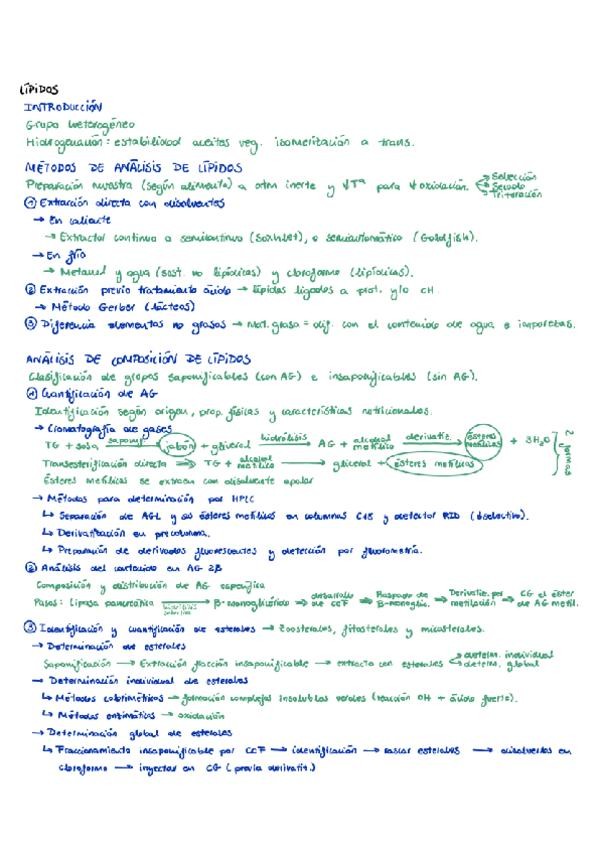 LÍPIDOS
INTRODUCCIÓN
Grupo heterogéneo
Hidrogenación: estabilidad aceites veg. isomerización a trans.
MÉTODOS DE ANÁLISIS DE LÍPIDOS
Preparación muestra (según alimento) a atm inerte y ↓Tª para ↓ oxidación. → Selección → Secado → Trituración
① Extracción directa con disolventes
→ En caliente
→ Extractor continuo o semicontinuo (Soxhlet), o semiautomático (Goldfish).
→ En frío
→ Metanol y agua (sust. no lipídicas) y cloroformo (lipídicas).
② Extracción previo tratamiento ácido → lípidos ligados a prot. y/o CH
→ Método Gerber (lácteos)
③ Diferencia elementos no grasos → Mat. grasa = dif. con el contenido de agua e
ANÁLISIS DE COMPOSICIÓN DE LÍPIDOS
Clasificación de grupos saponificables (con AG) e insaponificables (sin AG).
① Cuantificación de AG
Identificación según origen, prop. físicas y características nutricionales.
→ Cromatografía de gases
TG + sosa → saponif. → jabón + glicerol → hidrólisis → AG + alcohol metílico → derivatiz. → ésteres metílicos + 3H₂O } 2 formas
Transesterificación directa ⇒ TG + alcohol metílico → glicerol + ésteres metílicos
Ésteres metílicos se extraen con disolvente apolar
→ Métodos para determinación por HPLC
↳ Separación de AGL y sus ésteres metílicos en columnas C18 y detector RID (selectivo).
↳ Derivatización en precolumna.
↳ Preparación de derivados fluorescentes y detección por fluorometría.
② Análisis del contenido en AG 2β
Composición y distribución de AG específica
Pasos: Lipasa pancreática → β-monoglicérido ⇒ desarrollo de CCF ⇒ Raspado de β-monoglic. ⇒ Derivatiz. por metilación ⇒ CG el éster de AG metil.
③ Identificación y cuantificación de esteroles → Zoosteroles, fitosteroles y micosteroles.
→ Determinación de esteroles
Saponificación → Extracción fracción insaponificable → extracto con esteroles → determ. individual → determ. global
→ Determinación individual de esteroles
↳ Métodos colorimétricos → formación complejos insolubles verdes (reacción OH + ácido fuerte).
↳ Métodos enzimáticos → oxidación
→ Determinación global de esteroles
↳ Fraccionamiento insaponificable por CCF → identificación → rascar esteroles → disolverlos en
cloroformo → inyectar en CG (previa derivatiz.)